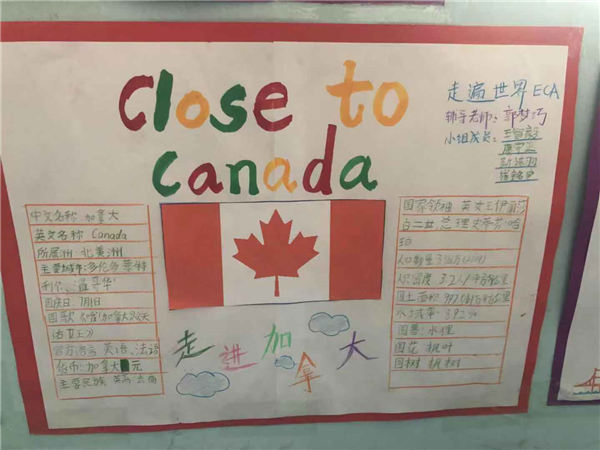 Close to
Canada
走遍世界 ECA
辅导老师: 郭梦巧
小组成员:
中文名称 加拿大
英文名称 Canada
所属洲 北美洲
主要城市:多伦多 蒙特
利尔、温哥华
国庆日 7月1日
国歌 《哦!加拿大》《天
佑女王》
官方语言 英语、法语
货币:加拿大元
主要民族 英裔 法裔
国家领袖 英女王伊丽莎
白二世,总理史蒂芬·哈
珀
人口数量
人口密度 3.2人/平方公里
国土面积
水域率
国兽:水狸
国花 枫叶
国树 枫树
走进加拿大